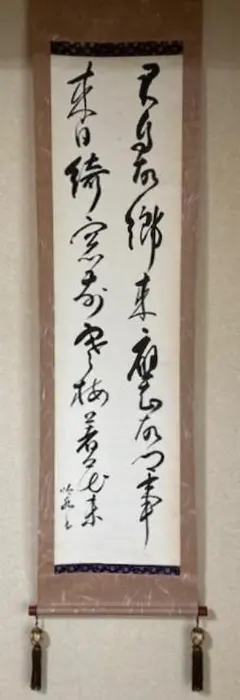 君自故郷来應知故郷事
来日綺窓前寒梅著花未